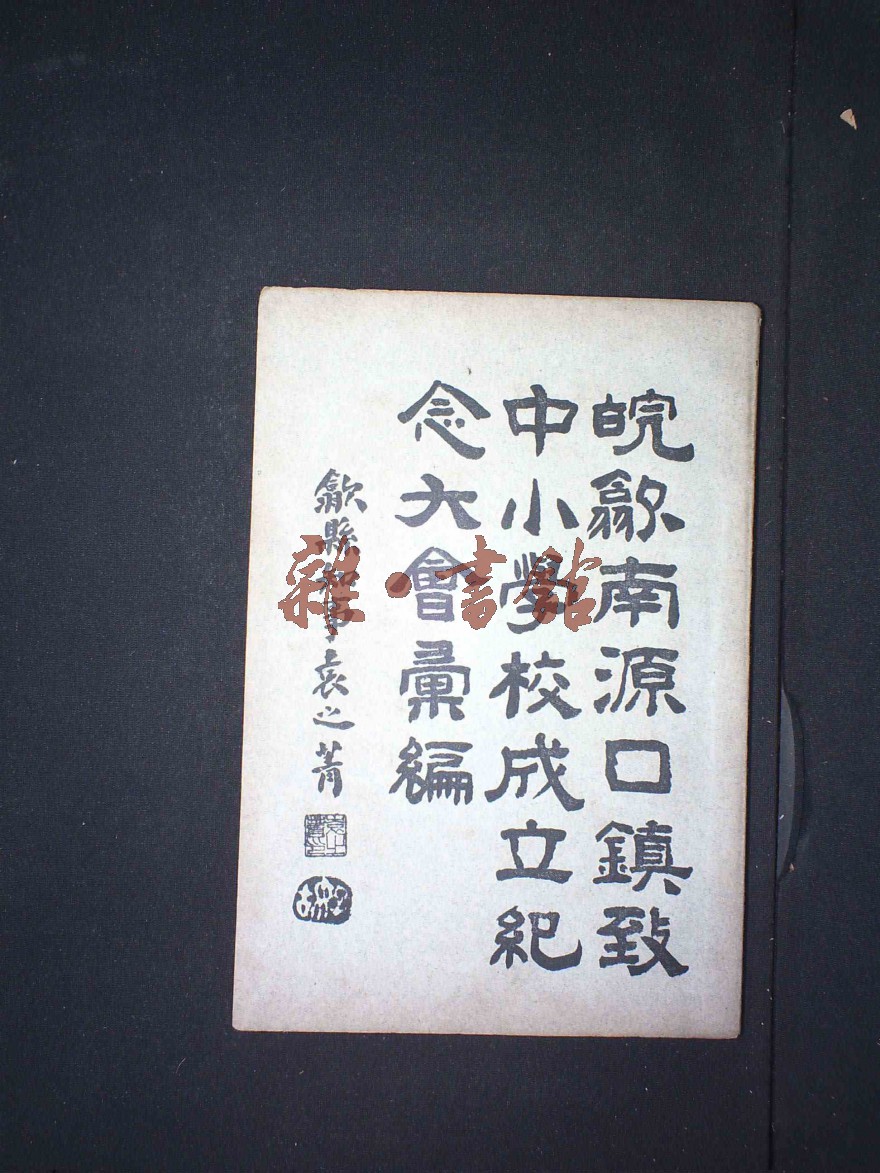 皖歙南源口鎮致
中小學校成立紀
念大會彙編
歙縣知事袁之菁
雜·書館